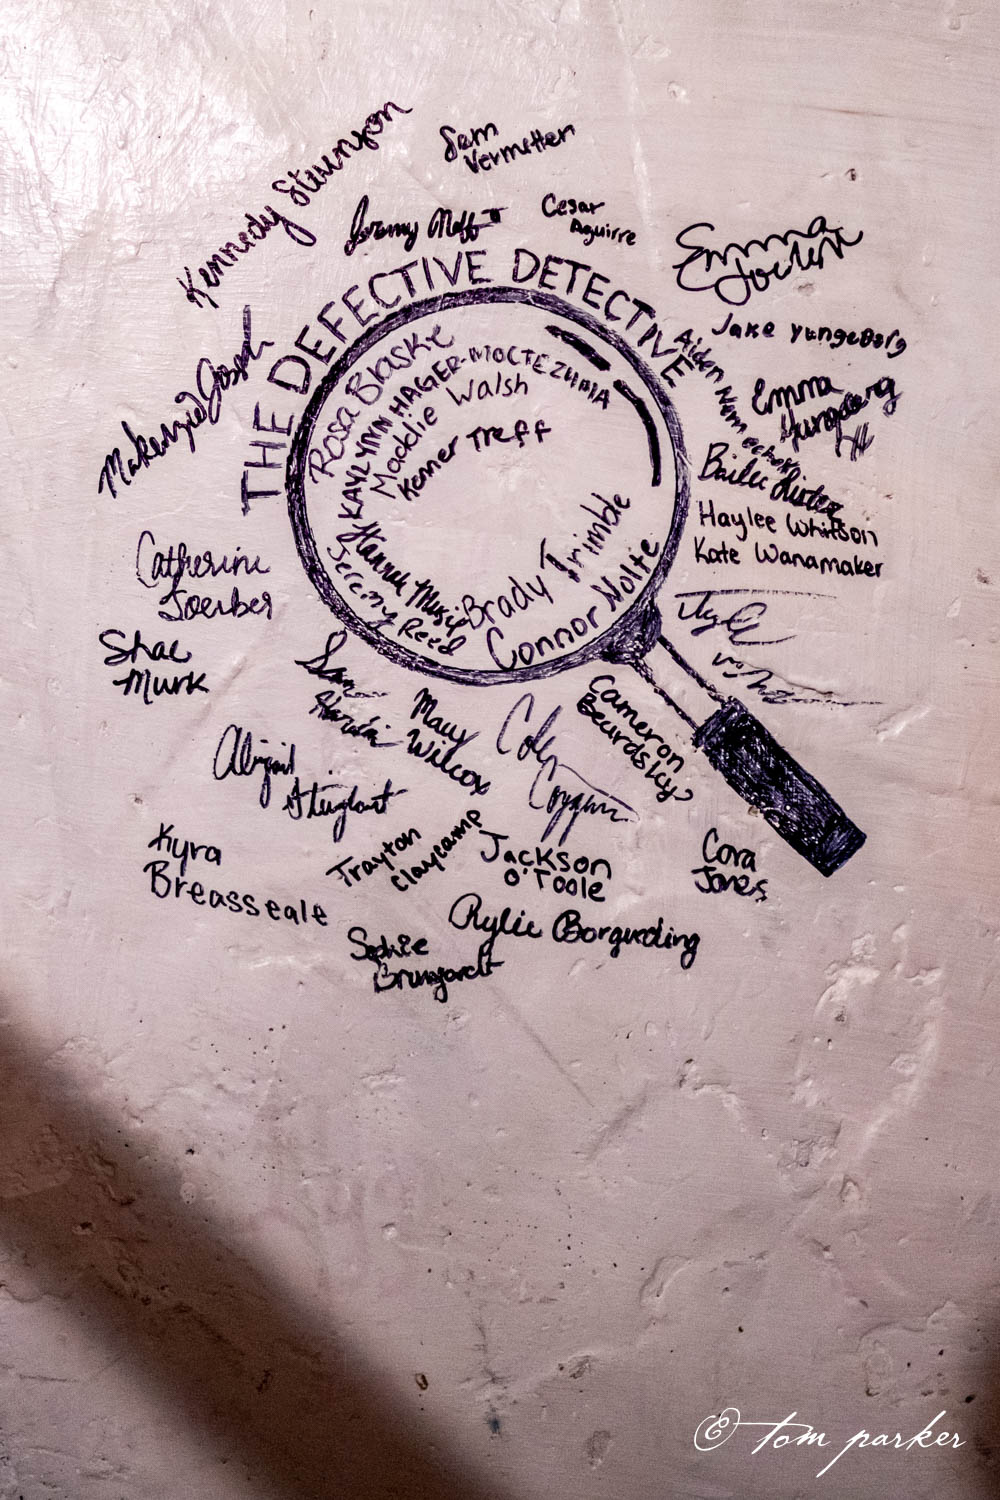 Kennedy
Sam
Vermetten
Jeremy Neff II
Cesar
Aguirre
Emma
THE DEFECTIVE DETECTIVE
Jake Yungeberg
Aiden
Emma
Yungeberg
Makenzie Joseph
Rosa Blaske
KAYLYNN HAGER-MOCTEZUMA
Maddie Walsh
Kenner Treff
Bailee
Haylee Whitson
Kate Wanamaker
Hannah Music
Jeremy Reed
Brady Trimble
Connor Nolte
Catherine
Joerber
Shae
Murk
Sam
Macy
Wilcox
Cameron
Beardsley
Abigail
Kyra
Breasseale
Trayton
Claycamp
Jackson
O'Toole
Cora
Jones
Rylie Borgueding
Sophie
Brungardt
© tom parker